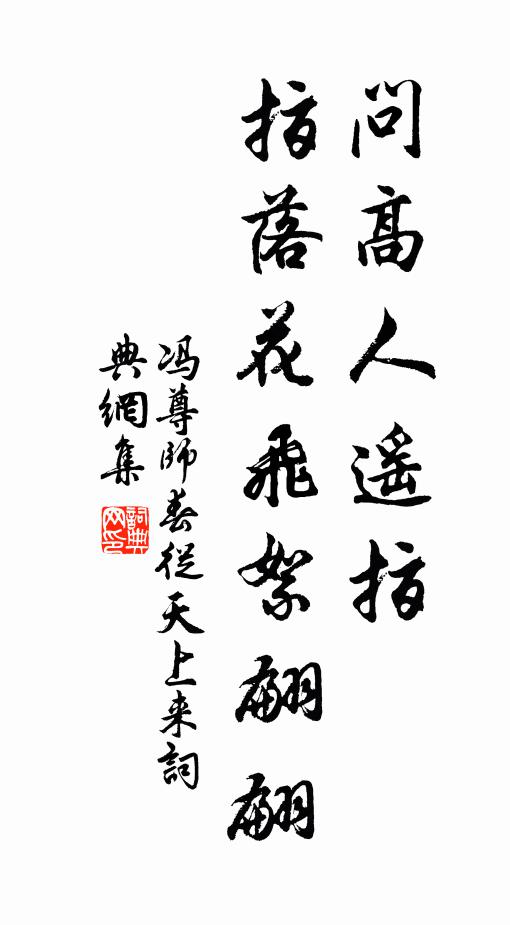 問高人遥指
指落花飛絮翩翩
冯尊師春從天上来詞
典網集
詞典
网印